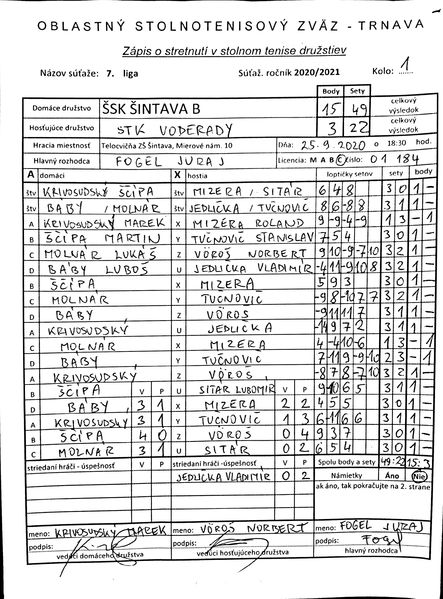 OBLASTNÝ STOLNOTENISOVÝ ZVÄZ - TRNAVA
Zápis o stretnutí v stolnom tenise družstiev
Názov súťaže: 7. liga Súťaž. ročník 2020/2021 Kolo: 1
Body Sety
Domáce družstvo ŠSK ŠINTAVA B 15 49 celkový výsledok
Hosťujúce družstvo STK VODERADY 3 22 celkový výsledok
Hracia miestnosť Telocvičňa ZŠ Šintava, Mierové nám. 10 Dňa: 25.9.2020 o 18:30 hod.
Hlavný rozhodca FOGEL JURAJ Licencia: M A B C číslo: 01 184
A domáci X hostia loptičky setov sety body
štv KRIVOSUDSKÝ ŠČIPA štv MIZERA / SITÁR 6 4 8 3 0 1 -
štv BABY / MOLNÁR štv JEDLIČKA / TUČNOVIČ 8 6 -8 8 3 1 1 -
A KRIVOSUDSKÝ MAREK X MIZERA ROLAND -9 -9 4 -9 1 3 - 1
B ŠČIPA MARTIN Y TUČNOVIČ STANISLAV 7 5 4 3 0 1 -
C MOLNÁR LUKÁŠ Z VÖRÖS NORBERT 9 10 -9 -7 10 3 2 1 -
D BABY ĽUBOŠ U JEDLIČKA VLADIMÍR -4 11 -9 10 8 3 2 1 -
B ŠČIPA X MIZERA 5 9 3 3 0 1 -
C MOLNÁR Y TUČNOVIČ -9 8 -10 7 7 3 2 1 -
D BABY Z VÖRÖS -9 11 11 7 3 1 1 -
A KRIVOSUDSKÝ U JEDLIČKA -14 9 7 2 3 1 1 -
C MOLNÁR X MIZERA 4 -4 -10 -6 1 3 - 1
D BABY Y TUČNOVIČ 7 -11 9 -9 -10 2 3 - 1
A KRIVOSUDSKÝ Z VÖRÖS -8 7 8 -7 10 3 2 1 -
B ŠČIPA V P U SITÁR ĽUBOMÍR V P -9 10 6 5 3 1 1 -
D BABY 3 1 X MIZERA 2 2 4 5 5 3 0 1 -
A KRIVOSUDSKÝ 3 1 Y TUČNOVIČ 1 3 6 -11 6 6 3 1 1 -
B ŠČIPA 4 0 Z VÖRÖS 0 4 9 3 7 3 0 1 -
C MOLNÁR 3 1 U SITÁR 0 2 6 5 4 3 0 1 -
striedaní hráči - úspešnosť V P striedaní hráči - úspešnosť V P Spolu body a sety 49:22 15:3
JEDLIČKA VLADIMÍR 0 2 Námietky Áno Nie
ak áno, tak pokračujte na 2. strane
meno: KRIVOSUDSKÝ MAREK meno: VÖRÖS NORBERT meno: FOGEL JURAJ
podpis: podpis: podpis:
vedúci domáceho družstva vedúci hosťujúceho družstva hlavný rozhodca